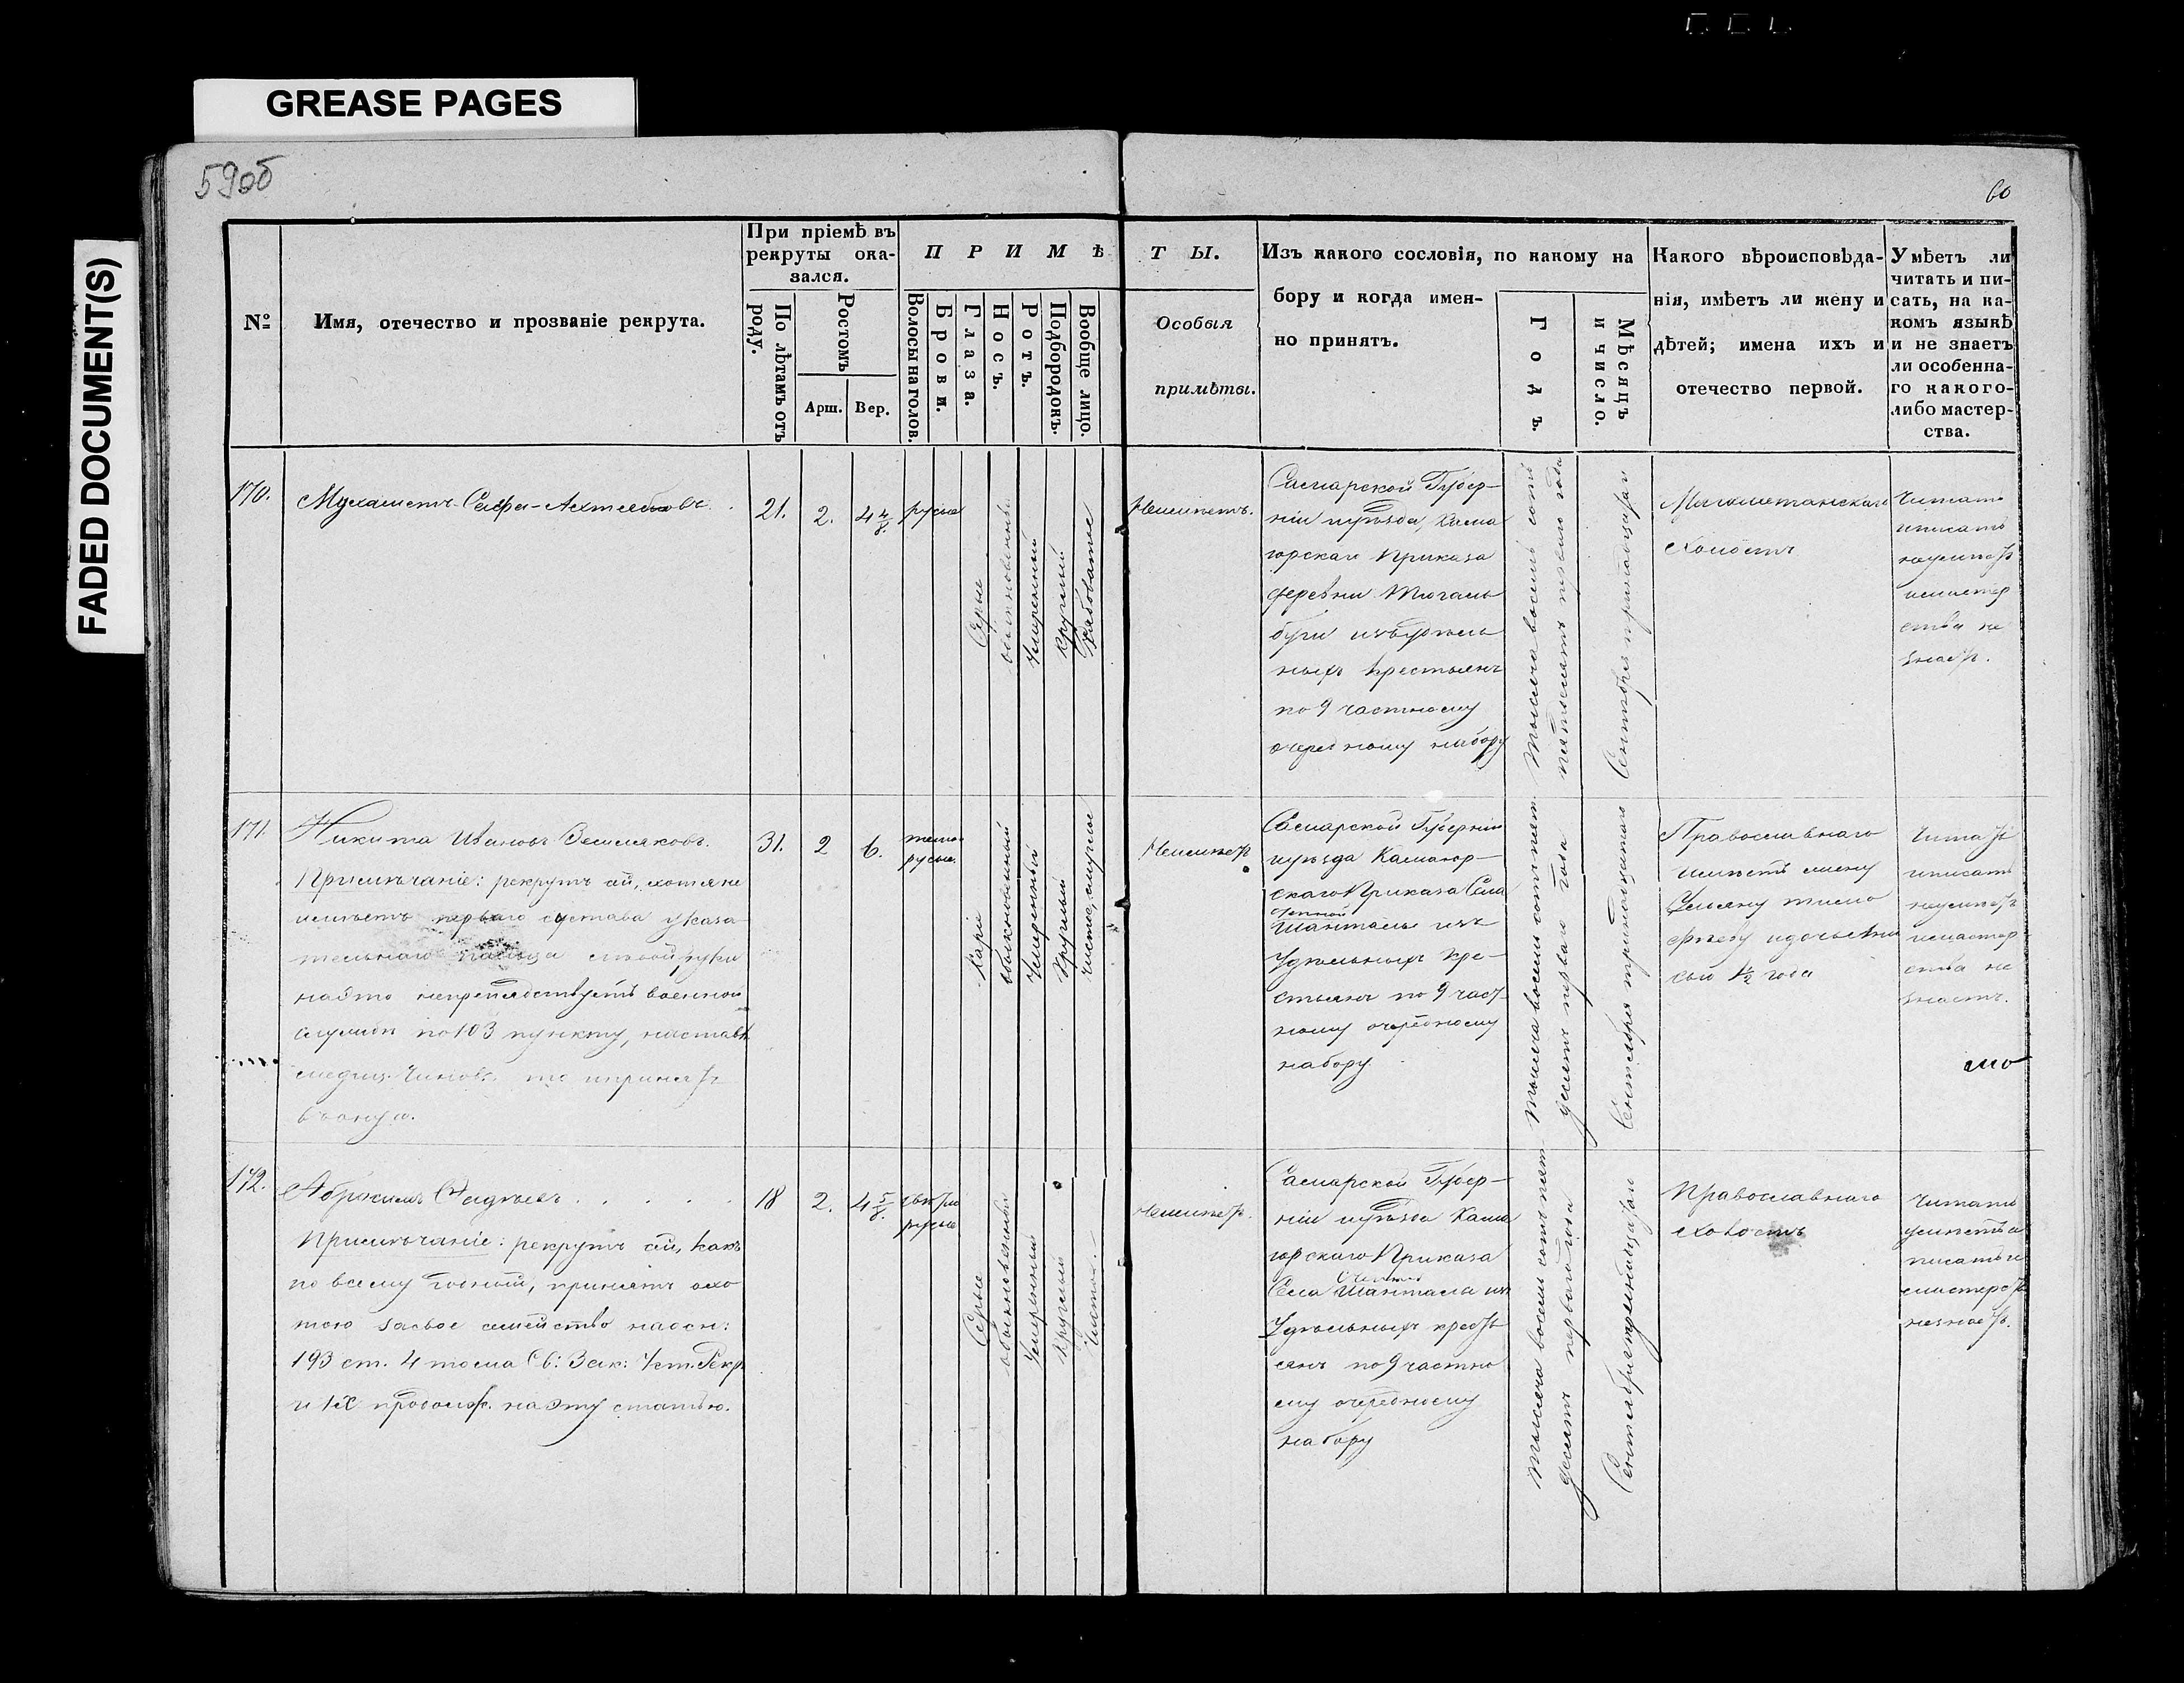 GREASE PAGES
FADED DOCUMENT(S)
59об
60
№
Имя, отечество и прозваніе рекрута.
При пріемѣ въ
рекруты ока-
зался.
По лѣтамъ отъ
роду.
Ростомъ
Арш.
Вер.
ПРИМѢ
Волосы на голов.
Брови.
Глаза.
Носъ.
Ротъ.
Подбородокъ.
Вообще лицо.
ТЫ.
Особыя
примѣты.
Изъ какого сословія, по какому на
бору и когда имен-
но принятъ.
Годъ.
Мѣсяцъ
и число.
Какого вѣроисповѣда-
нія, имѣетъ ли жену и
дѣтей; имена ихъ и
отечество первой.
Умѣетъ ли
читать и пи-
сать, на ка-
комъ языкѣ
и не знаетъ
ли особенна-
го какого-
либо мастер-
ства.
170.
21.
2.
4 4/8.
русые
Серые
обыкновенный
Умеренный
круглый
Рябоватое
Неимѣетъ.
Самарской Губер-
ніи и уѣзда, Кама
горскаго Приказа
деревни
ныхъ крестьянъ
по 9 частному
очередному набору
Тысяча восемь сотъ
пятьдесятъ перваго года
Сентября тринадцатаго
Магометанскаго
Холостъ
Читать
и писать
неумѣетъ
и мастер
ства не
знаетъ.
171.
Никита Ивановъ Земляковъ.
Примѣчаніе: рекрутъ сей, хотя не
имѣетъ перваго сустава указа
тельнаго пальца лѣвой руки
но это непрепядствуетъ военной
службѣ по 103 пункту, настав
медиц. Чинов. то и принятъ
въ оную.
31.
2
6.
темно
русые.
Карые
обыкновенный
Умеренный
Круглый
чистое, смуглое
Неимѣетъ
Самарской Губерніи
и уѣзда Камагор-
скаго Приказа Села
Степной
Шанталы изъ
Удѣльныхъ кре-
стьянъ по 9 част-
ному очередному
набору.
Тысяча восемь сотъ пять
десятъ перваго года
Сентября тринадцатаго
Православнаго
имѣетъ жену
Ульяну Тимо
фѣеву и дочь
1/2 года
Читать
и писать
неумѣетъ
и мастер
ства не
знаетъ.
172.
Примѣчаніе: рекрутъ сей, какъ
по всему годной, принятъ охо
тою за свое семейство на осн:
193 ст. 4 тома Св: Зак: Уст. Рекр
и IX продолж. на эту статью.
18
2.
4 5/8.
светло
русые
Серые
обыкновенной
Умеренный
Круглый
Чистое.
Неимѣетъ.
Самарской Губер-
ніи и уѣзда Кама
горскаго Приказа
Степной
Села Шантала изъ
Удѣльныхъ кресть
янъ по 9 частно
му очередному
набору
Тысяча восемь сотъ пять
десятъ перваго года
Сентября тринадцатаго
Православнаго
холостъ
Читать
умѣетъ а
писать и
мастерств
незнаетъ.